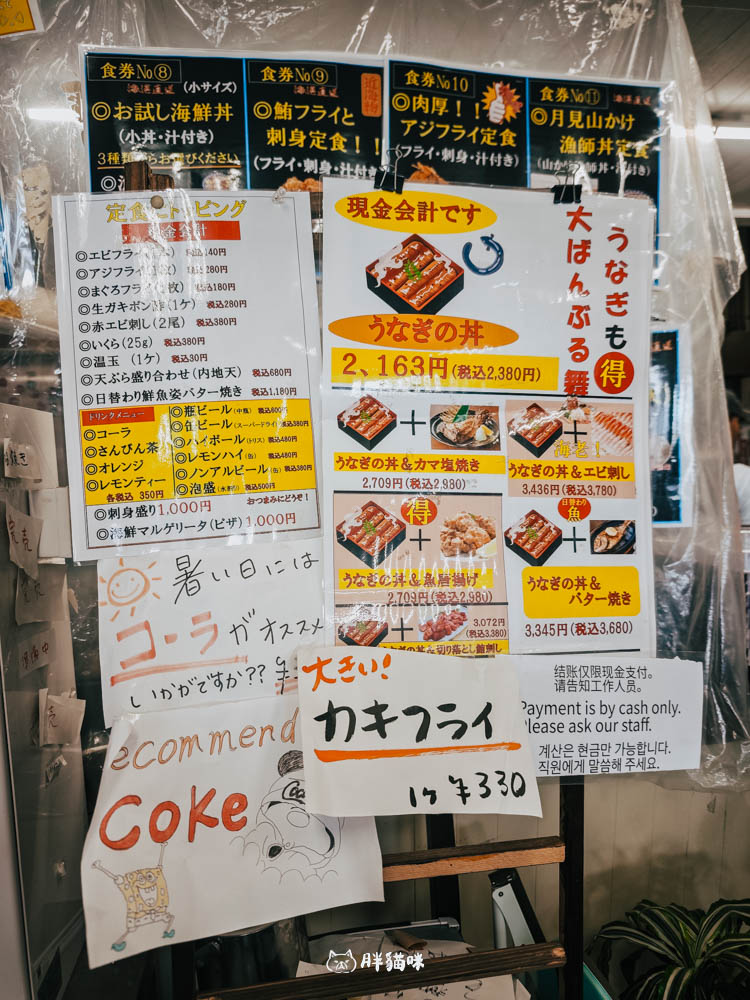 食券No⑧
(小サイズ)
◎お試し海鮮丼
(小丼・汁付き)
食券No⑨
◎鮪フライと
刺身定食！！
(フライ・刺身・汁付き)
食券No10
◎肉厚！！
アジフライ定食
(フライ・刺身・汁付き)
食券No⑪
◎月見山かけ
漁師丼定食
定食 トッピング
現金会計
◎エビフライ 税込140円
◎アジフライ 税込280円
◎まぐろフライ 税込180円
◎生ガキポン酢(1ケ) 税込280円
◎赤エビ刺し(2尾) 税込380円
◎いくら(25g) 税込380円
◎温玉 (1ケ) 税込30円
◎天ぷら盛り合わせ(内地天) 税込680円
◎日替わり鮮魚姿バター焼き 税込1,180円
ドリンクメニュー
◎コーラ
◎さんぴん茶
◎オレンジ
◎レモンティー
各税込 350円
◎瓶ビール(中瓶) 税込600円
◎缶ビール(スーパードライ) 税込380円
◎ハイボール(トリス) 税込480円
◎レモンハイ(缶) 税込480円
◎ノンアルビール(缶) 税込380円
◎泡盛 税込500円
おつまみにどうぞ！
◎刺身盛り1,000円
◎海鮮マルゲリータ(ピザ) 1,000円
現金会計です
うなぎも得
大ばんぶる舞
うなぎの丼
2、163円(税込2,380円)
うなぎの丼＆カマ塩焼き
2,709円(税込2,980)
海老！
うなぎの丼＆エビ刺し
3,436円(税込3,780)
得
うなぎの丼＆魚唐揚げ
2,709円(税込2,980)
日替わり
魚
うなぎの丼＆
バター焼き
3,345円(税込3,680)
3,072円
(税込3,380)
うなぎの丼＆切り落とし鮪刺し
暑い日には
コーラがオススメ
いかがですか??
ecommend
Coke
大きい!
カキフライ
1ケ ¥330
结账仅限现金支付。
请告知工作人员。
Payment is by cash only.
Please ask our staff.
계산은 현금만 가능합니다.
직원에게 말씀해 주세요.
完売
胖貓咪